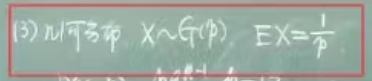 (3) 几何分布 X~G(p) EX=1/p